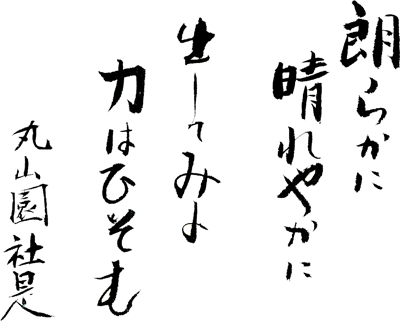 朗らかに
晴れやかに
出してみよ
力はひそむ
丸山園社是